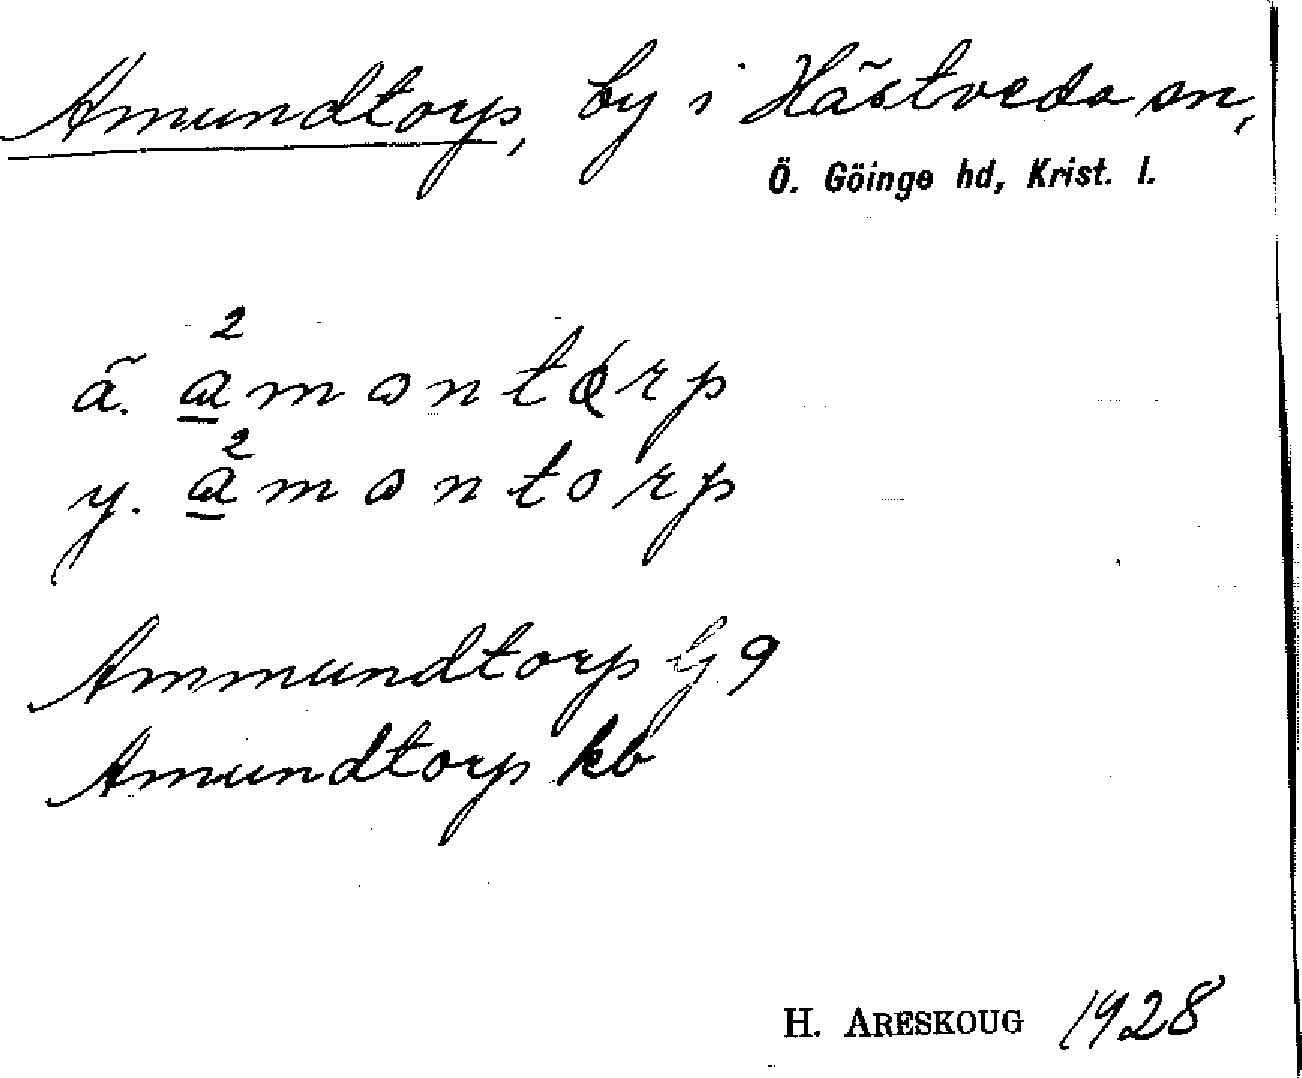 Amundtorp, by i Hästveda sn,
Ö. Göinge hd, Krist. l.
ä. a²montorp
y. a²montorp
Ammundtorp G 9
Amundtorp kb
H. ARESKOUG 1928